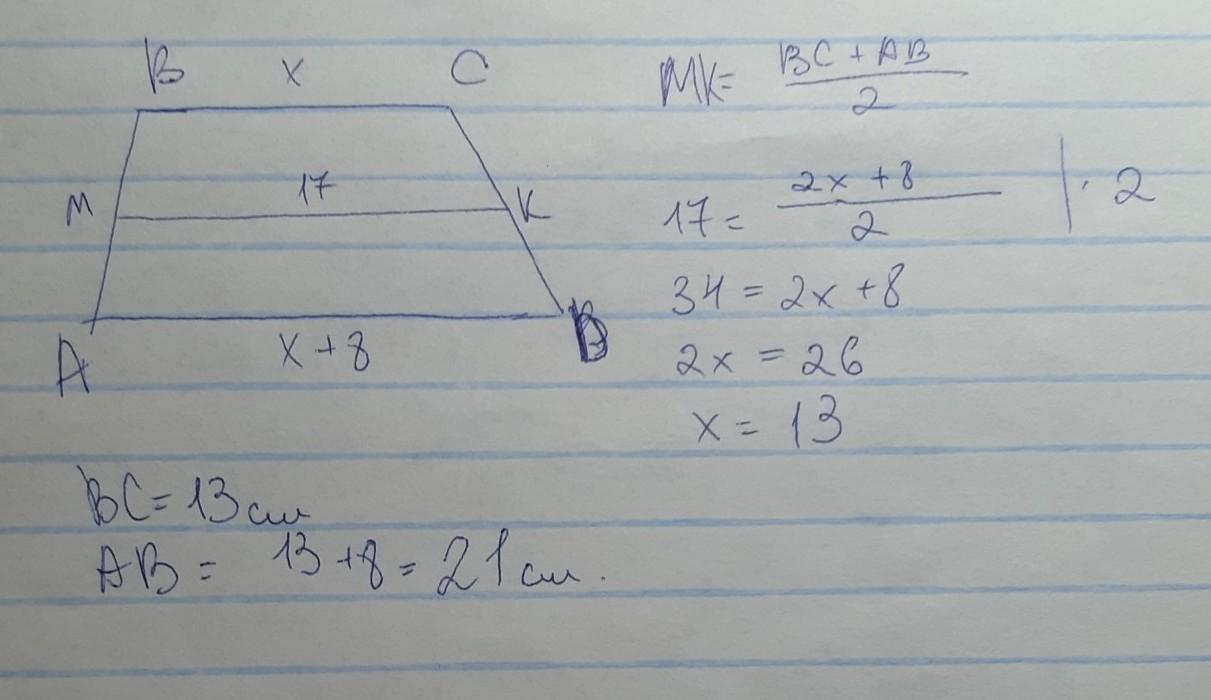 B x C
17
M K
A x+8 D
MK = (BC + AB)/2
17 = (2x + 8)/2 | · 2
34 = 2x + 8
2x = 26
x = 13
BC = 13 см
AB = 13 + 8 = 21 см.